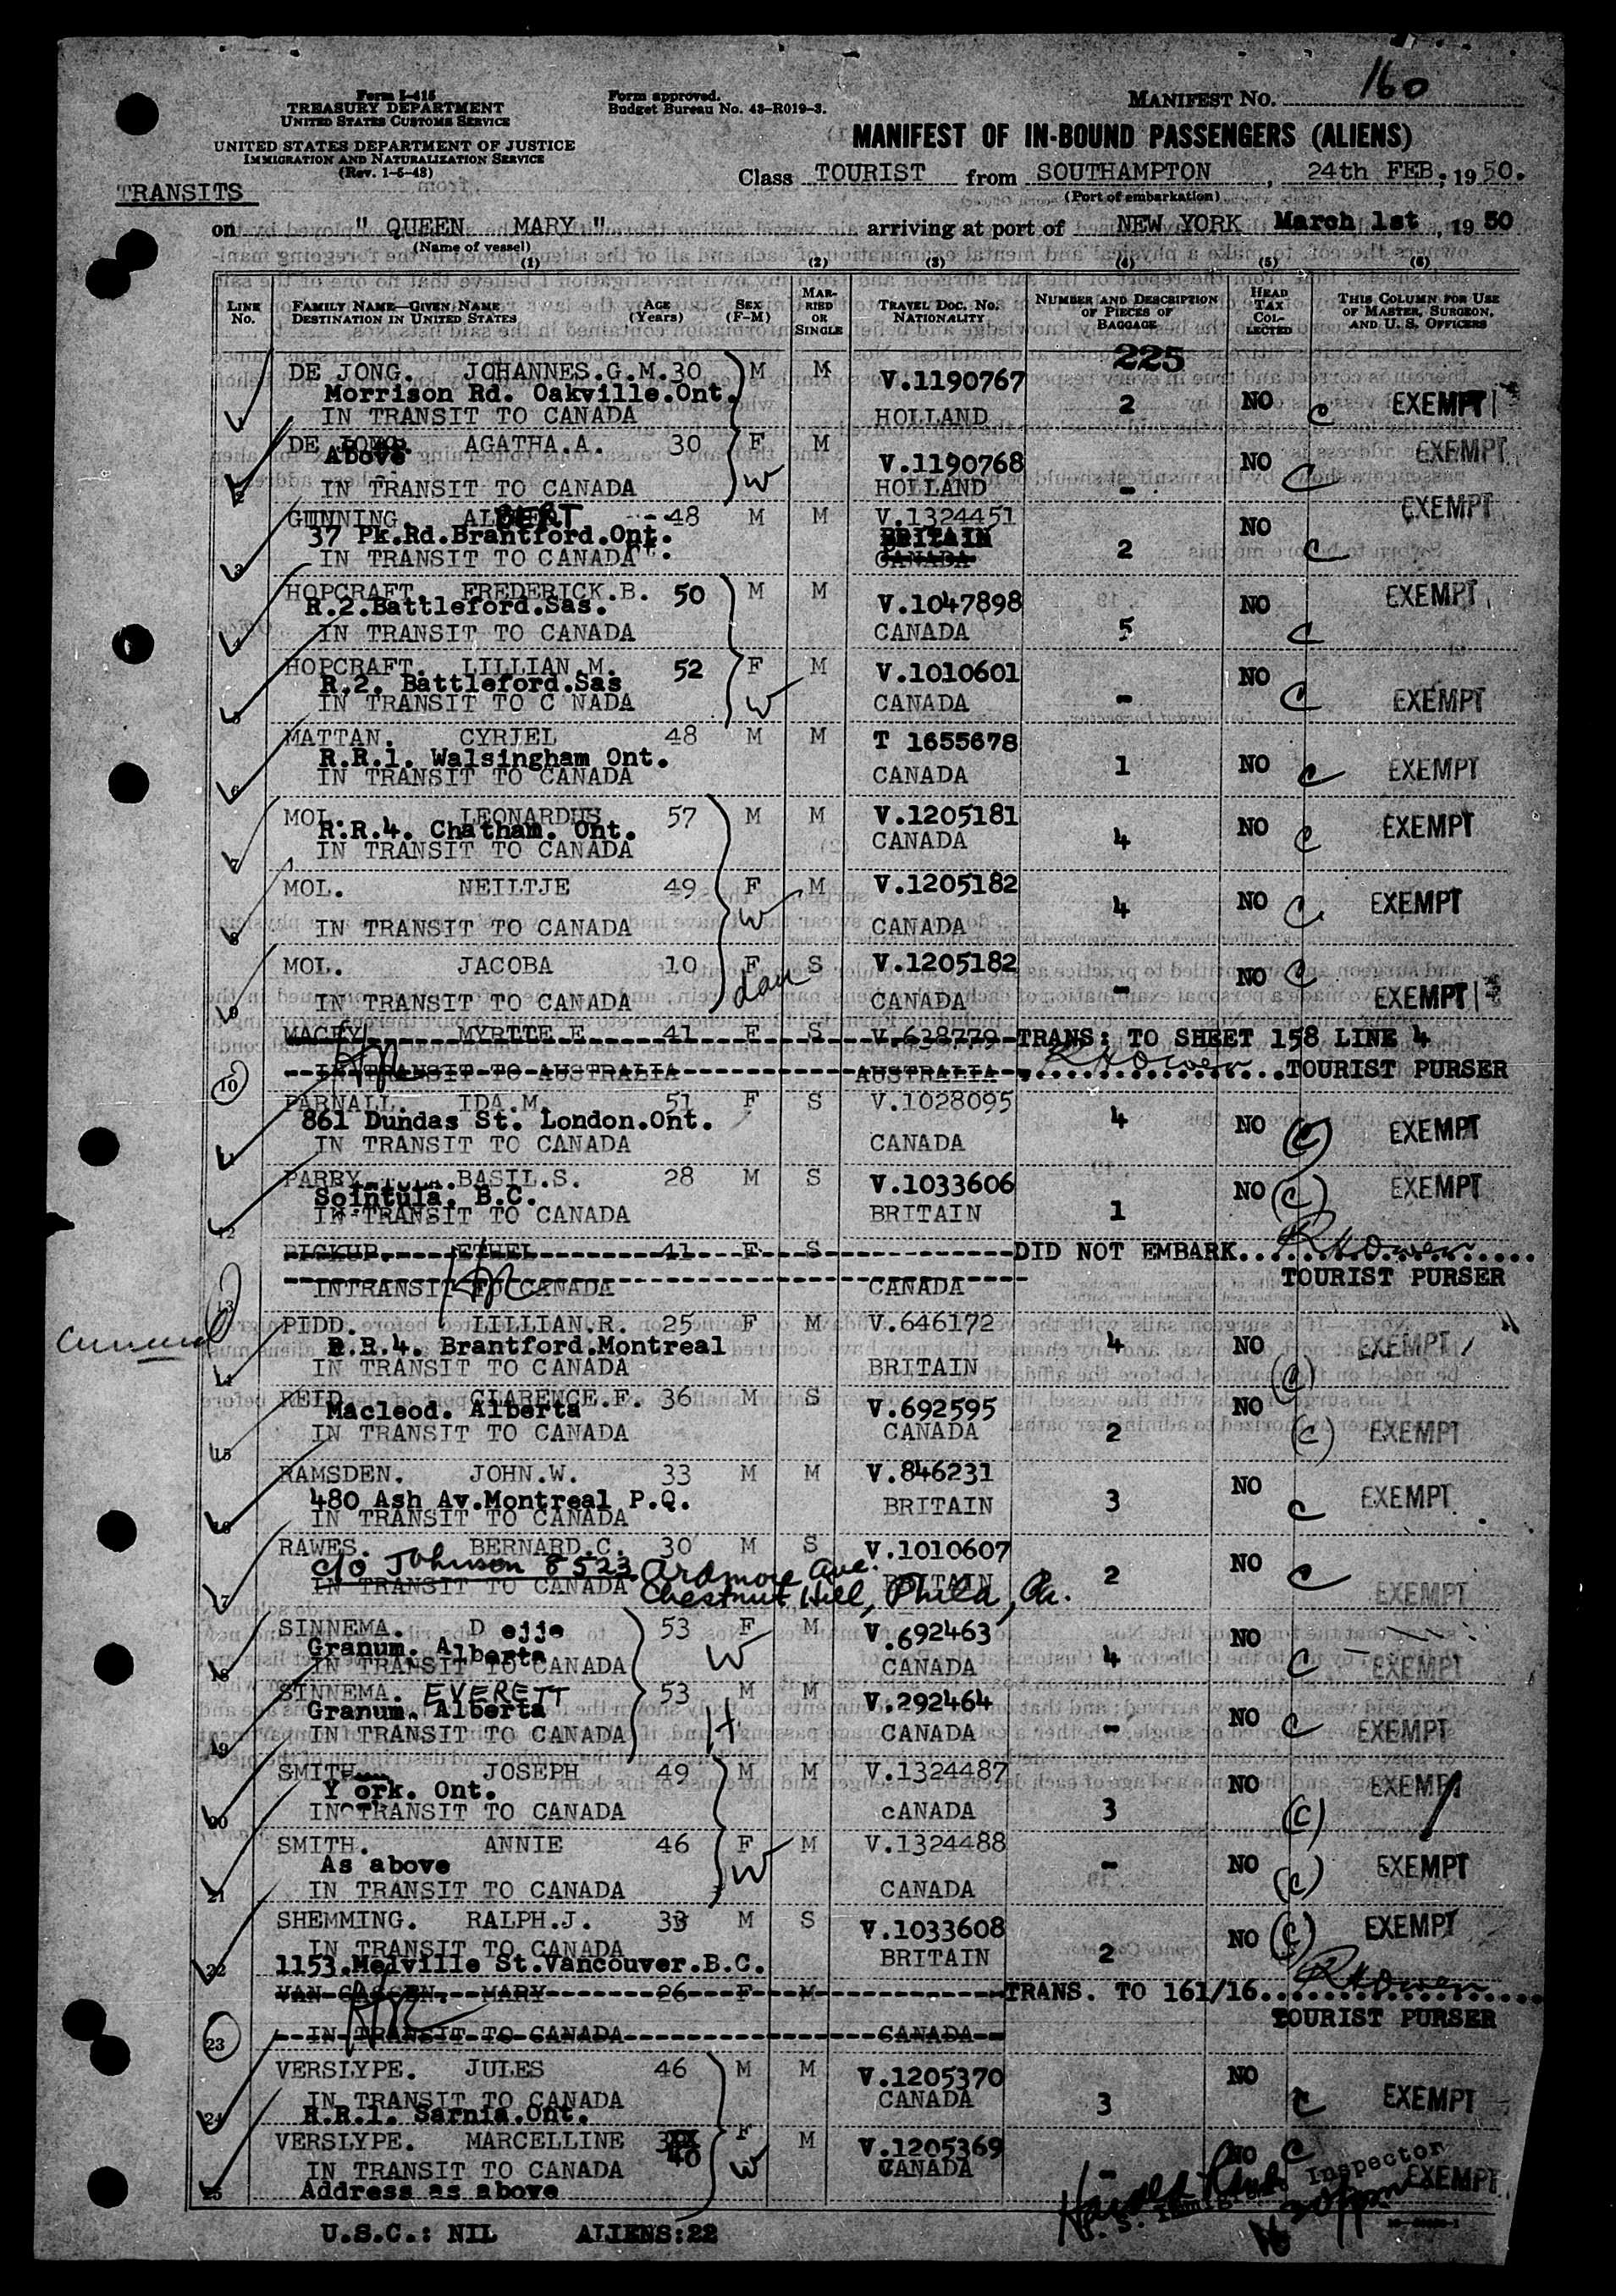 160
Form I-415
TREASURY DEPARTMENT
UNITED STATES CUSTOMS SERVICE
UNITED STATES DEPARTMENT OF JUSTICE
IMMIGRATION AND NATURALIZATION SERVICE
(Rev. 1-5-48)
Form approved.
Budget Bureau No. 43-R019-3.
MANIFEST NO.
MANIFEST OF IN-BOUND PASSENGERS (ALIENS)
TRANSITS
Class TOURIST from SOUTHAMPTON, 24th FEB, 1950.
(Port of embarkation)
on " QUEEN MARY " arriving at port of NEW YORK March 1st, 19 50
(Name of vessel)
(1) (2) (3) (4) (5) (6)
LINE NO. FAMILY NAME—GIVEN NAME DESTINATION IN UNITED STATES AGE (Years) SEX (F-M) MARRIED OR SINGLE TRAVEL DOC. NO. NATIONALITY NUMBER AND DESCRIPTION OF PIECES OF BAGGAGE HEAD TAX COLLECTED THIS COLUMN FOR USE OF MASTER, SURGEON, AND U. S. OFFICERS
225
DE JONG. JOHANNES.G.M. 30 M M V.1190767
Morrison Rd. Oakville.Ont.
1 IN TRANSIT TO CANADA HOLLAND 2 NO C EXEMPT
DE JONG. AGATHA.A. 30 F M V.1190768 NO C EXEMPT
Above
2 IN TRANSIT TO CANADA W HOLLAND -
GUNNING. ALBERT 48 M M V.1324451 NO EXEMPT
37 Pk.Rd.Brantford.Ont. BRITAIN
3 IN TRANSIT TO CANADA CANADA 2 C
HOPCRAFT. FREDERICK.B. 50 M M V.1047898 NO EXEMPT
R.2.Battleford.Sas.
4 IN TRANSIT TO CANADA CANADA 5 C
HOPCRAFT. LILLIAN.M. 52 F M V.1010601 NO
R.2. Battleford.Sas
5 IN TRANSIT TO C NADA W CANADA - C EXEMPT
MATTAN. CYRIEL 48 M M T 1655678
R.R.1. Walsingham Ont.
6 IN TRANSIT TO CANADA CANADA 1 NO C EXEMPT
MOL. LEONARDUS 57 M M V.1205181
R.R.4. Chatham. Ont.
7 IN TRANSIT TO CANADA CANADA 4 NO C EXEMPT
MOL. NEILTJE 49 F M V.1205182
8 IN TRANSIT TO CANADA W CANADA 4 NO C EXEMPT
MOL. JACOBA 10 F S V.1205182
9 IN TRANSIT TO CANADA dau CANADA - NO C EXEMPT
MACEY. MYRTTE.E. 41 F S V.638779 TRANS: TO SHEET 158 LINE 4
10 IN TRANSIT TO AUSTRALIA AUSTRALIA RHOwen TOURIST PURSER
PARNALL. IDA.M. 51 F S V.1028095 4
861 Dundas St. London.Ont.
11 IN TRANSIT TO CANADA CANADA NO (C) EXEMPT
PARRY. BASIL.S. 28 M S V.1033606 NO (C) EXEMPT
Sointula. B.C.
12 IN TRANSIT TO CANADA BRITAIN 1
PICKUP. ETHEL 41 F S DID NOT EMBARK. RHOwen
13 INTRANSIT TO CANADA CANADA TOURIST PURSER
PIDD. LILLIAN.R. 25 F M V.646172
R.R.4. Brantford.Montreal 4 NO EXEMPT
14 IN TRANSIT TO CANADA BRITAIN (C)
REID. CLARENCE.F. 36 M S V.692595 NO
Macleod. Alberta
15 IN TRANSIT TO CANADA CANADA 2 (C) EXEMPT
RAMSDEN. JOHN.W. 33 M M V.846231
480 Ash Av.Montreal P.Q.
16 IN TRANSIT TO CANADA BRITAIN 3 NO C EXEMPT
RAWES. BERNARD.C. 30 M S V.1010607
c/o Johnson 8523 Ardmore Ave.
17 IN TRANSIT TO CANADA BRITAIN 2 NO C EXEMPT
Chestnut Hill, Phila, Pa.
SINNEMA. D ejje 53 F M V.692463 NO
Granum. Alberta
18 IN TRANSIT TO CANADA W CANADA 4 C EXEMPT
SINNEMA. EVERETT 53 M M V.292464
Granum. Alberta
19 IN TRANSIT TO CANADA H CANADA - NO C EXEMPT
SMITH. JOSEPH 49 M M V.1324487 NO EXEMPT
Y ork. Ont.
20 IN TRANSIT TO CANADA cANADA 3 (C)
SMITH. ANNIE 46 F M V.1324488
As above
21 IN TRANSIT TO CANADA W CANADA - NO (C) EXEMPT
SHEMMING. RALPH.J. 33 M S V.1033608
IN TRANSIT TO CANADA BRITAIN 2 NO (C) EXEMPT
22 1153.Medville St.Vancouver.B.C.
MARY 26 F M TRANS. TO 161/16. RHOwen
TOURIST PURSER
23 IN TRANSIT TO CANADA CANADA
VERSLYPE. JULES 46 M M V.1205370 NO
IN TRANSIT TO CANADA CANADA 3 C EXEMPT
24 R.R.1. Sarnia.Ont.
VERSLYPE. MARCELLINE 40 F M V.1205369
IN TRANSIT TO CANADA W CANADA - NO C EXEMPT
25 Address as above
U.S. Immigrant Inspector
U.S.C.: NIL ALIENS:22